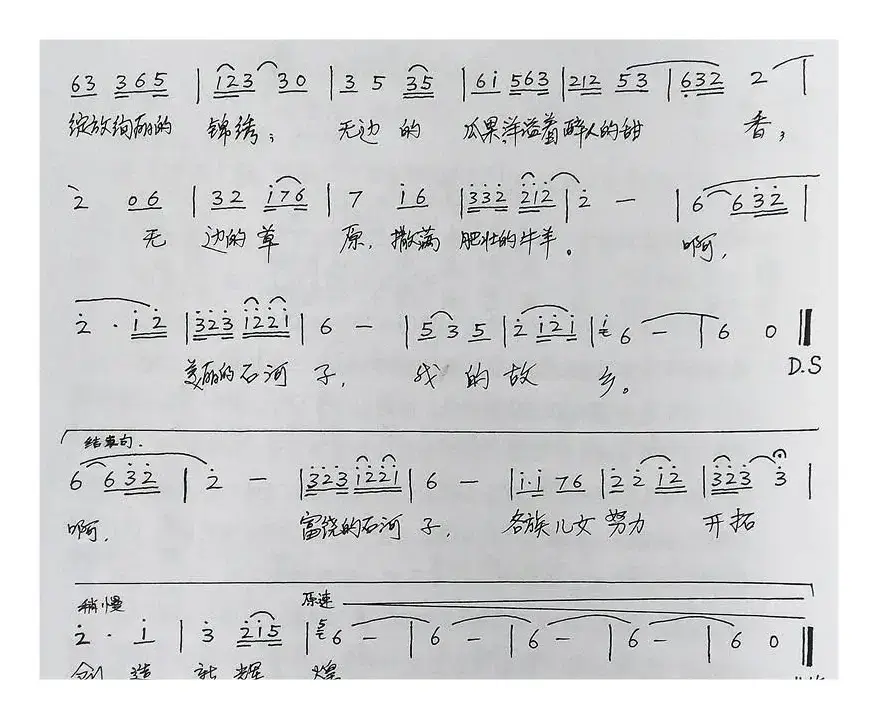 63 365 | 123 30 | 3 5 35 | 6i 563 | 212 53 | 632 2 |
绽放绚丽的 锦绣; 无边 的 瓜果洋溢着醉人的甜 香;
2 06 | 32 i76 | 7 i6 | 332 212 | 2 — | 6 632 |
无 边的草 原, 撒满 肥壮的牛羊。 啊,
2 · i2 | 323 i22i | 6 — | 5 3 5 | 2 i2i | i 6 — | 6 0 ‖
D.S
美丽的石河 子, 我 的 故 乡。
结束句.
6 632 | 2 — | 323 i22i | 6 — | i·i 76 | 2 2 i2 | 323 3 |
啊, 富饶的石河 子, 各族儿女 努力 开拓
稍慢 原速
2 · i | 3 2i5 | 5 6 — | 6 — | 6 — | 6 — | 6 0 ‖
创 造 新 辉 煌